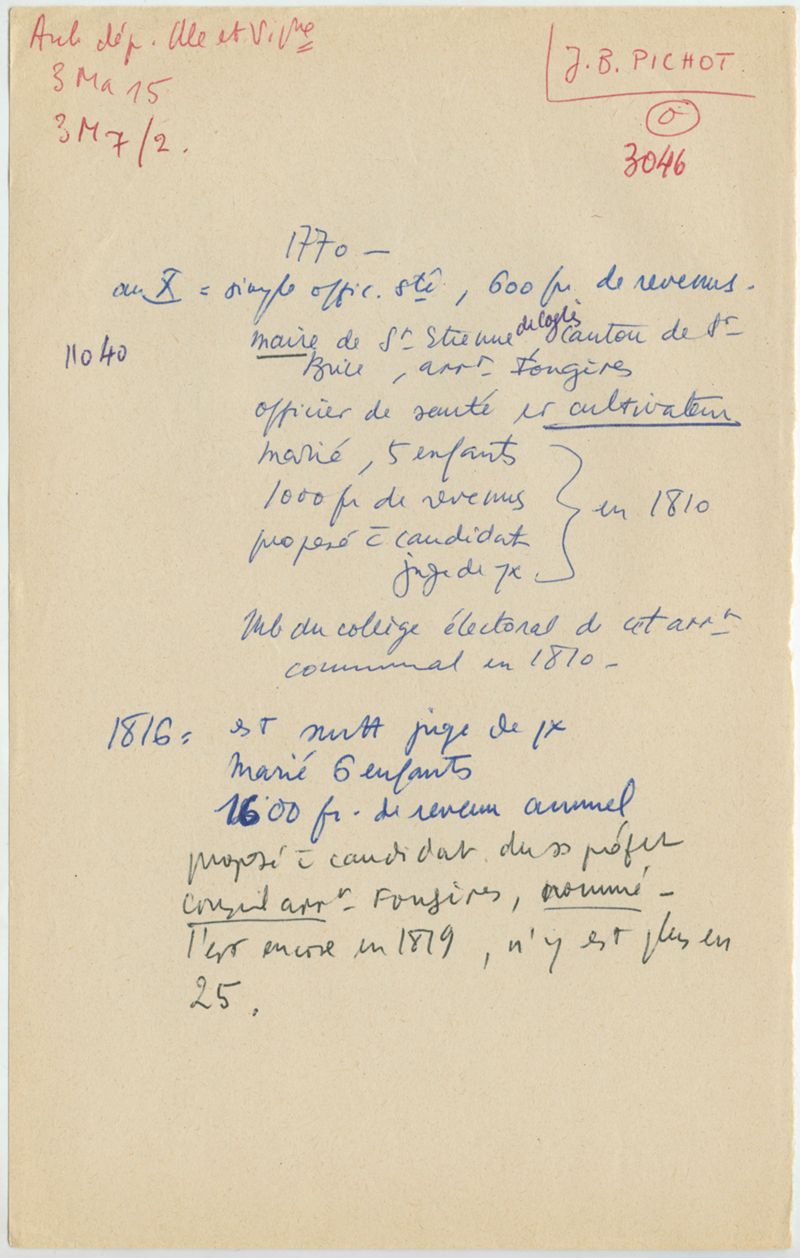 Arch dép. Ille et Vilne
3 Ma 15
3 M 7/2.
J. B. PICHOT
3046
1770 –
an X = simple offic. sté, 600 fr. de revenus.
11040
maire de St Etienne de Coglès Canton de St
Brice, arrt Fougères
officier de santé et cultivateur
marié, 5 enfants
1000 fr de revenus
proposé c̄ candidat
juge de px
en 1810
Mb du collège électoral de cet arrt
communal en 1810 –
1816 = est juge de px
Marié 6 enfants
1600 fr. de revenu annuel
proposé c̄ candidat du ss préfet
Conseil arrt Fougères, nommé –
l'est encore en 1819, n'y est plus en
25.